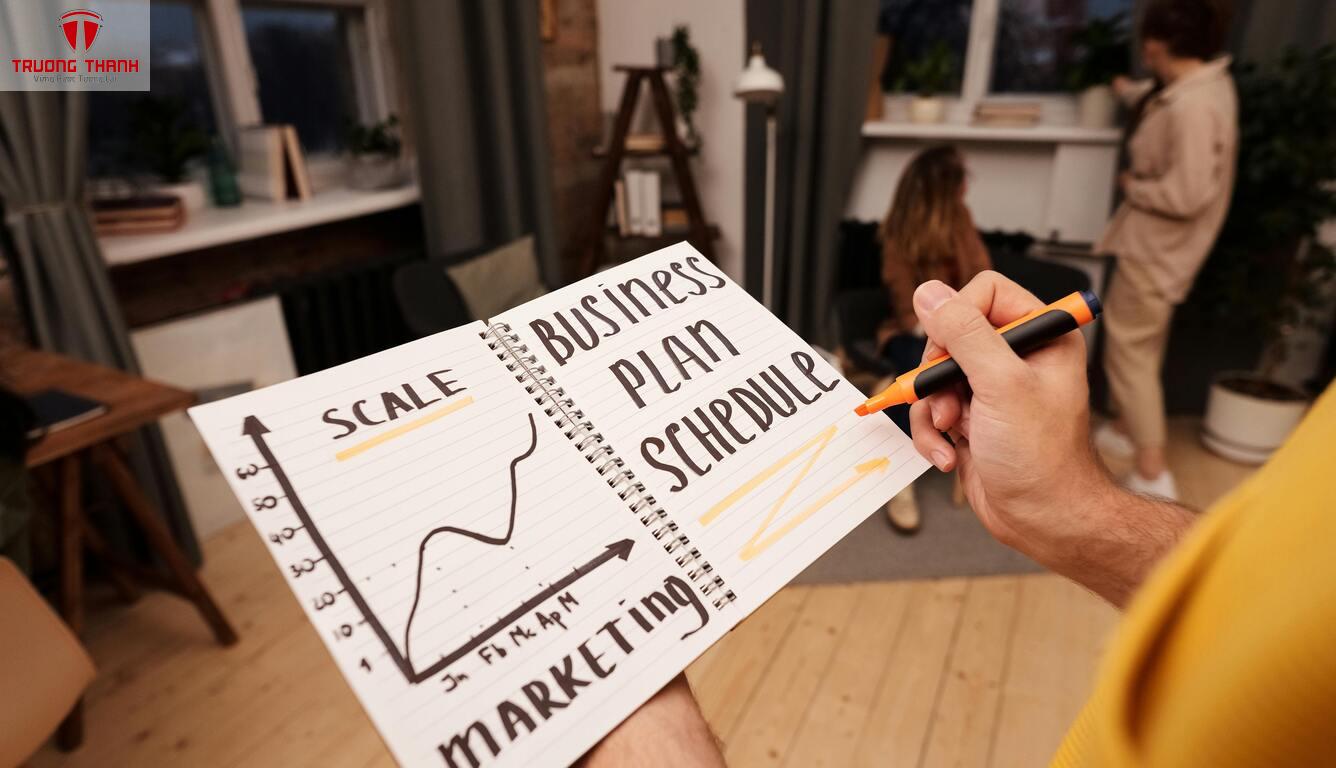 TRUONG THANH
Vững Bước Tương Lai
SCALE
50
40
30
20
10
1
Jn Fb Mc Ap M
MARKETING
BUSINESS
PLAN
SCHEDULE